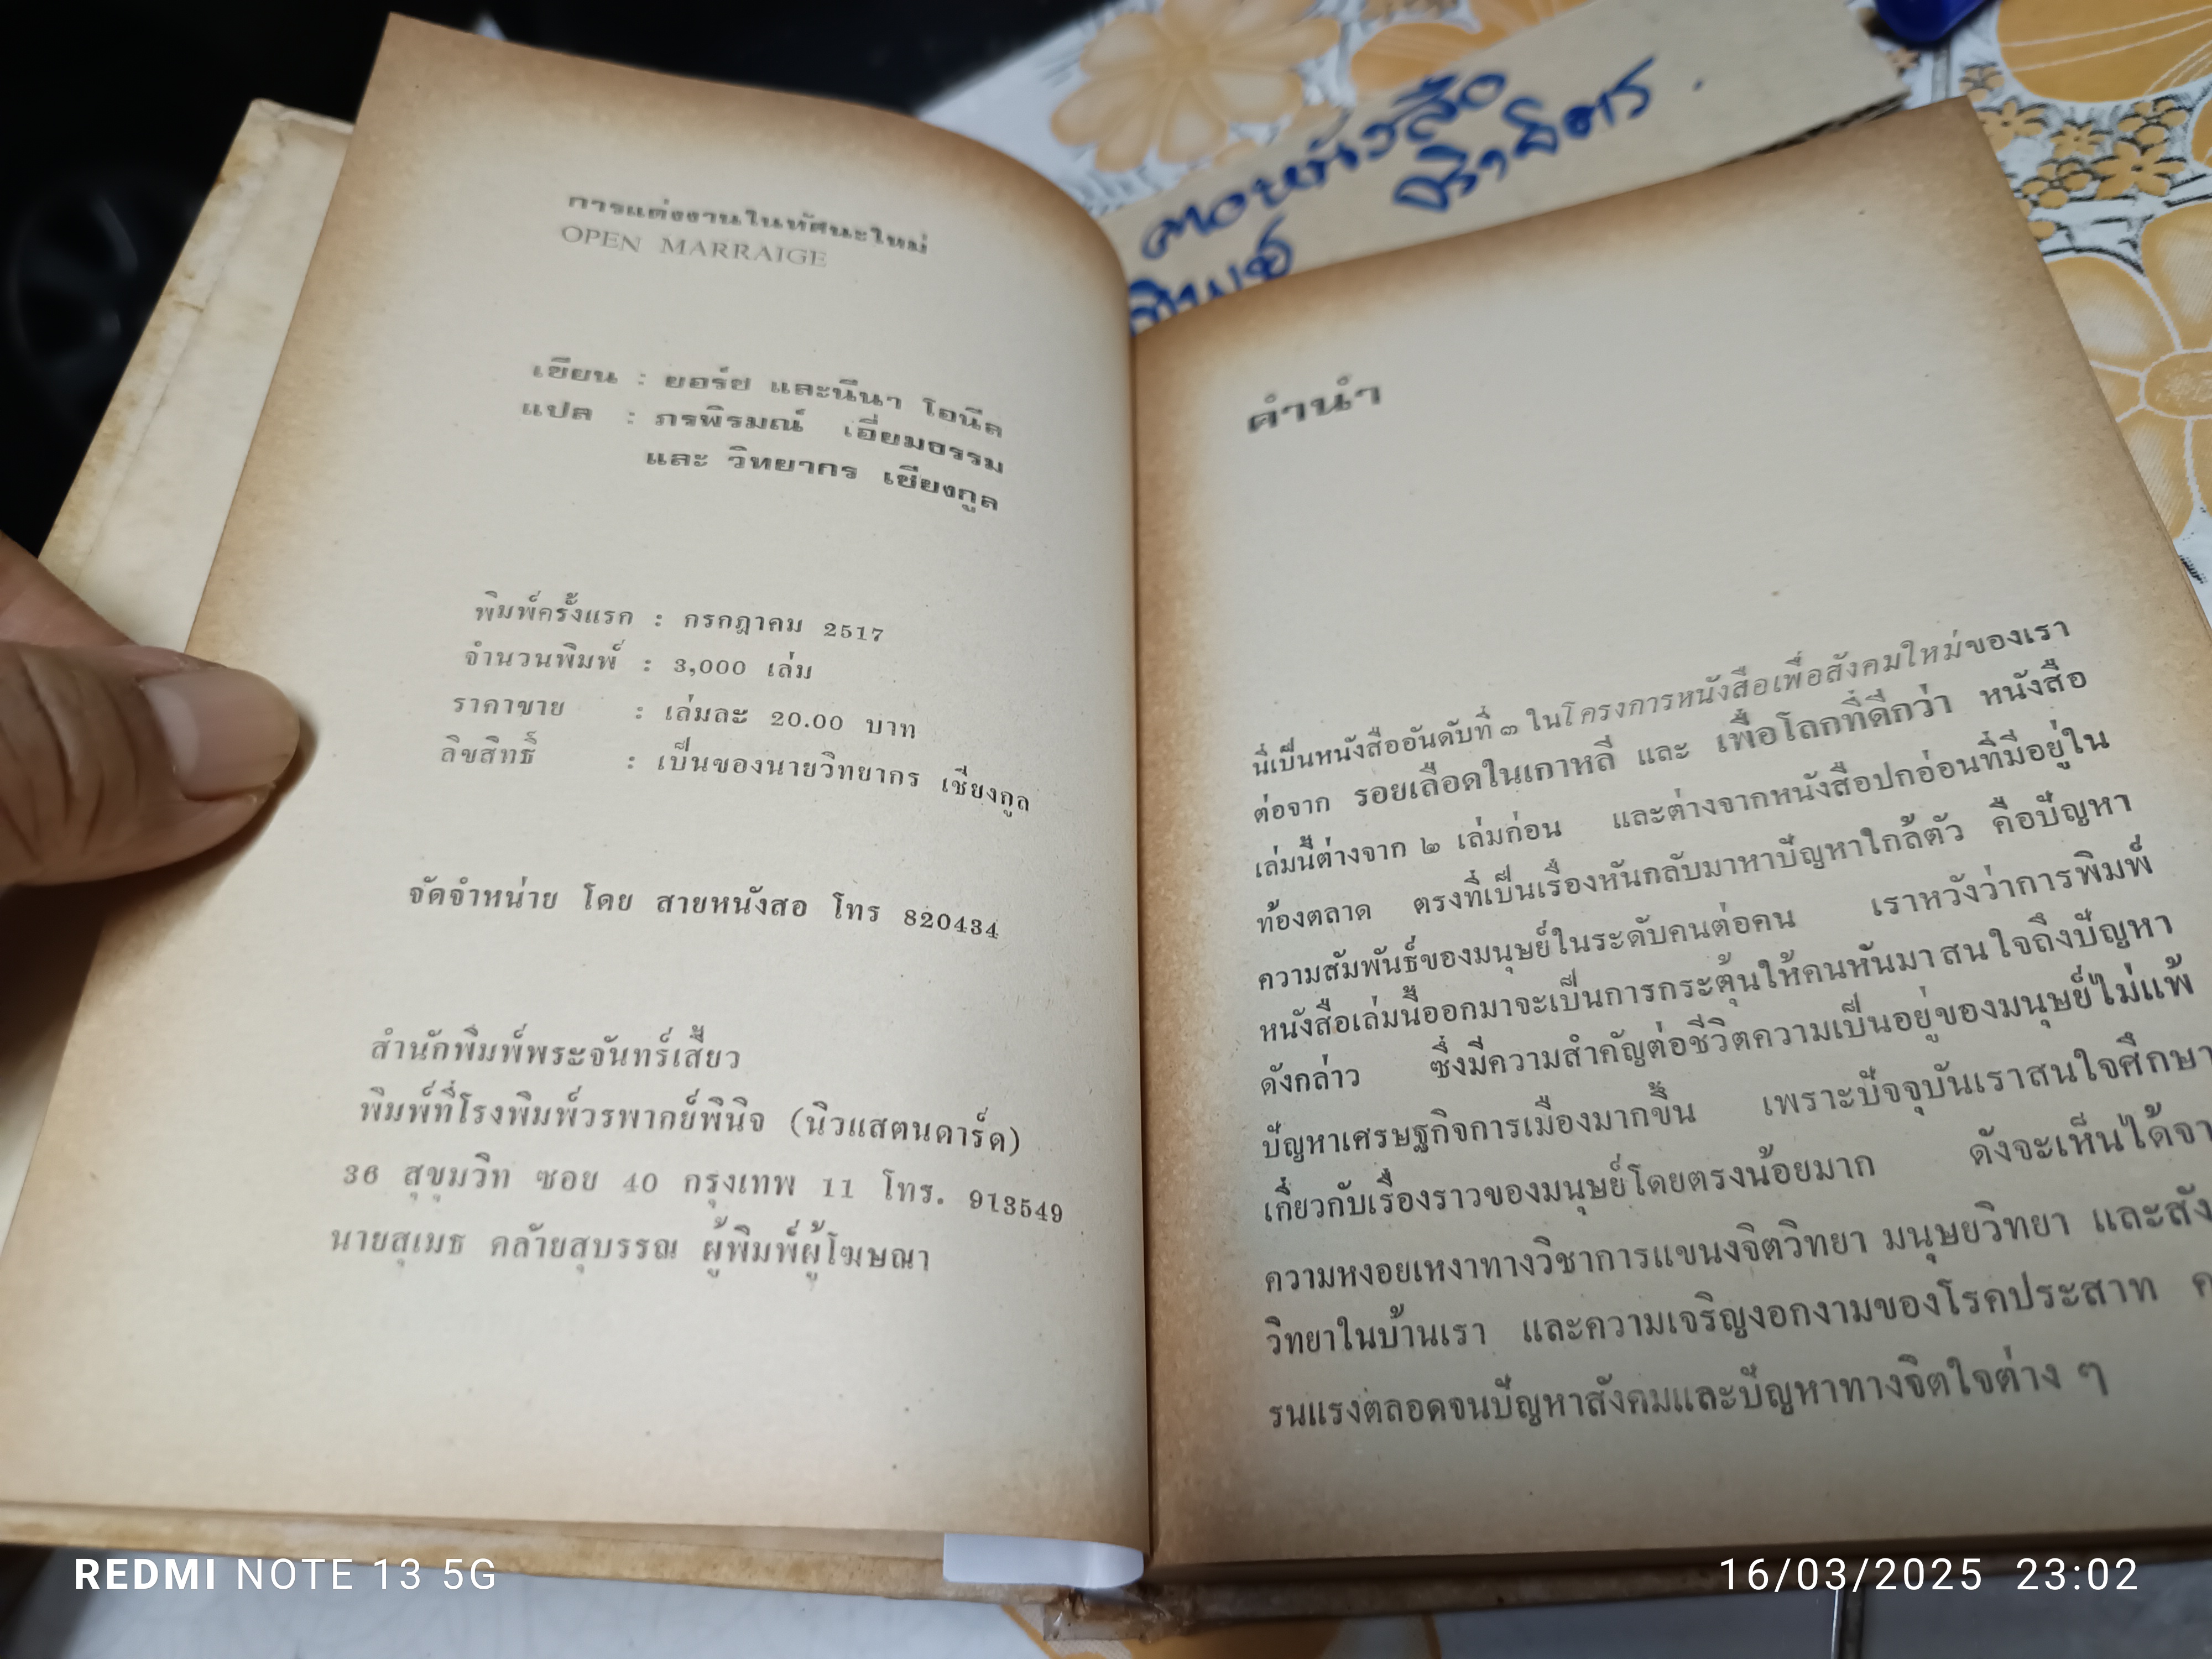 การแต่งงานในทัศนะใหม่
OPEN MARRAIGE
เขียน : ยอร์ช และนีนา โอนีล
แปล : ภรพิรมณ์ เอี่ยมธรรม
และ วิทยากร เชียงกูล
พิมพ์ครั้งแรก : กรกฎาคม 2517
จำนวนพิมพ์ : 3,000 เล่ม
ราคาขาย : เล่มละ 20.00 บาท
ลิขสิทธิ์ : เป็นของนายวิทยากร เชียงกูล
จัดจำหน่าย โดย สายหนังสอ โทร 820434
สำนักพิมพ์พระจันทร์เสี้ยว
พิมพ์ที่โรงพิมพ์วรพากย์พินิจ (นิวแสตนดาร์ด)
36 สุขุมวิท ซอย 40 กรุงเทพ 11 โทร. 913549
นายสุเมธ คล้ายสุบรรณ ผู้พิมพ์ผู้โฆษณา
คำนำ
นี่เป็นหนังสืออันดับที่ ๓ ในโครงการหนังสือเพื่อสังคมใหม่ของเรา
ต่อจาก รอยเลือดในเกาหลี และ เพื่อโลกที่ดีกว่า หนังสือ
เล่มนี้ต่างจาก ๒ เล่มก่อน และต่างจากหนังสือปกอ่อนที่มีอยู่ใน
ท้องตลาด ตรงที่เป็นเรื่องหันกลับมาหาปัญหาใกล้ตัว คือปัญหา
ความสัมพันธ์ของมนุษย์ในระดับคนต่อคน เราหวังว่าการพิมพ์
หนังสือเล่มนี้ออกมาจะเป็นการกระตุ้นให้คนหันมาสนใจถึงปัญหา
ดังกล่าว ซึ่งมีความสำคัญต่อชีวิตความเป็นอยู่ของมนุษย์ไม่แพ้
ปัญหาเศรษฐกิจการเมืองมากขึ้น เพราะปัจจุบันเราสนใจศึกษา
เกี่ยวกับเรื่องราวของมนุษย์โดยตรงน้อยมาก ดังจะเห็นได้จา
ความหงอยเหงาทางวิชาการแขนงจิตวิทยา มนุษยวิทยา และสัง
วิทยาในบ้านเรา และความเจริญงอกงามของโรคประสาท ค
รนแรงตลอดจนปัญหาสังคมและปัญหาทางจิตใจต่าง ๆ
REDMI NOTE 13 5G
16/03/2025 23:02